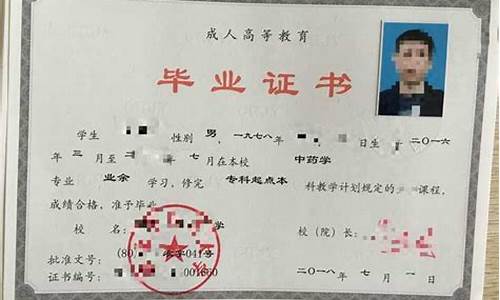 成人高等教育
毕业证书
学生 性别 男，一九七八年 月 日生，二〇一六
年 三 月至 二 年 七 月在本校 中药学
专业 业余 学习，修完 专科起点本 科教学计划规定的 课程，
成绩合格，准予毕业
校 名： 学 校（院）长：
批准文号：(80) 字041号
证书编号： 001660 二〇一八年 七 月 一 日